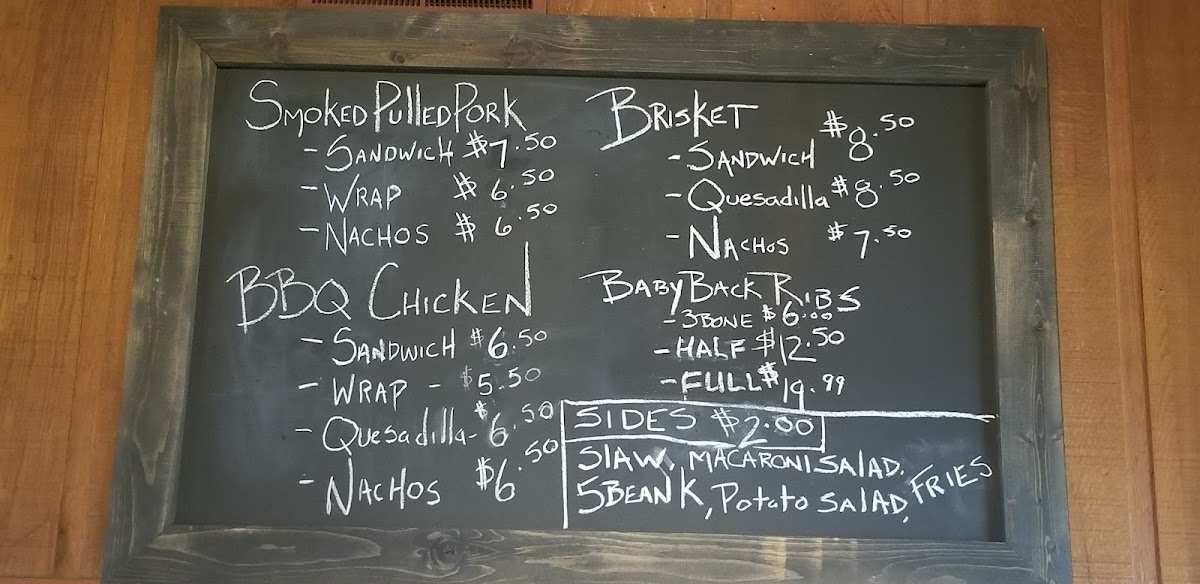 Smoked Pulled Pork
- Sandwich $7.50
- Wrap $6.50
- Nachos $6.50
BBQ Chicken
- Sandwich $6.50
- Wrap - $5.50
- Quesadilla - $6.50
- Nachos $6.50
Brisket
- Sandwich $8.50
- Quesadilla $8.50
- Nachos $7.50
Baby Back Ribs
- 3 Bone $6.00
- Half $12.50
- Full $19.99
SIDES $2.00
Slaw, Macaroni Salad,
5 Bean K, Potato Salad, Fries